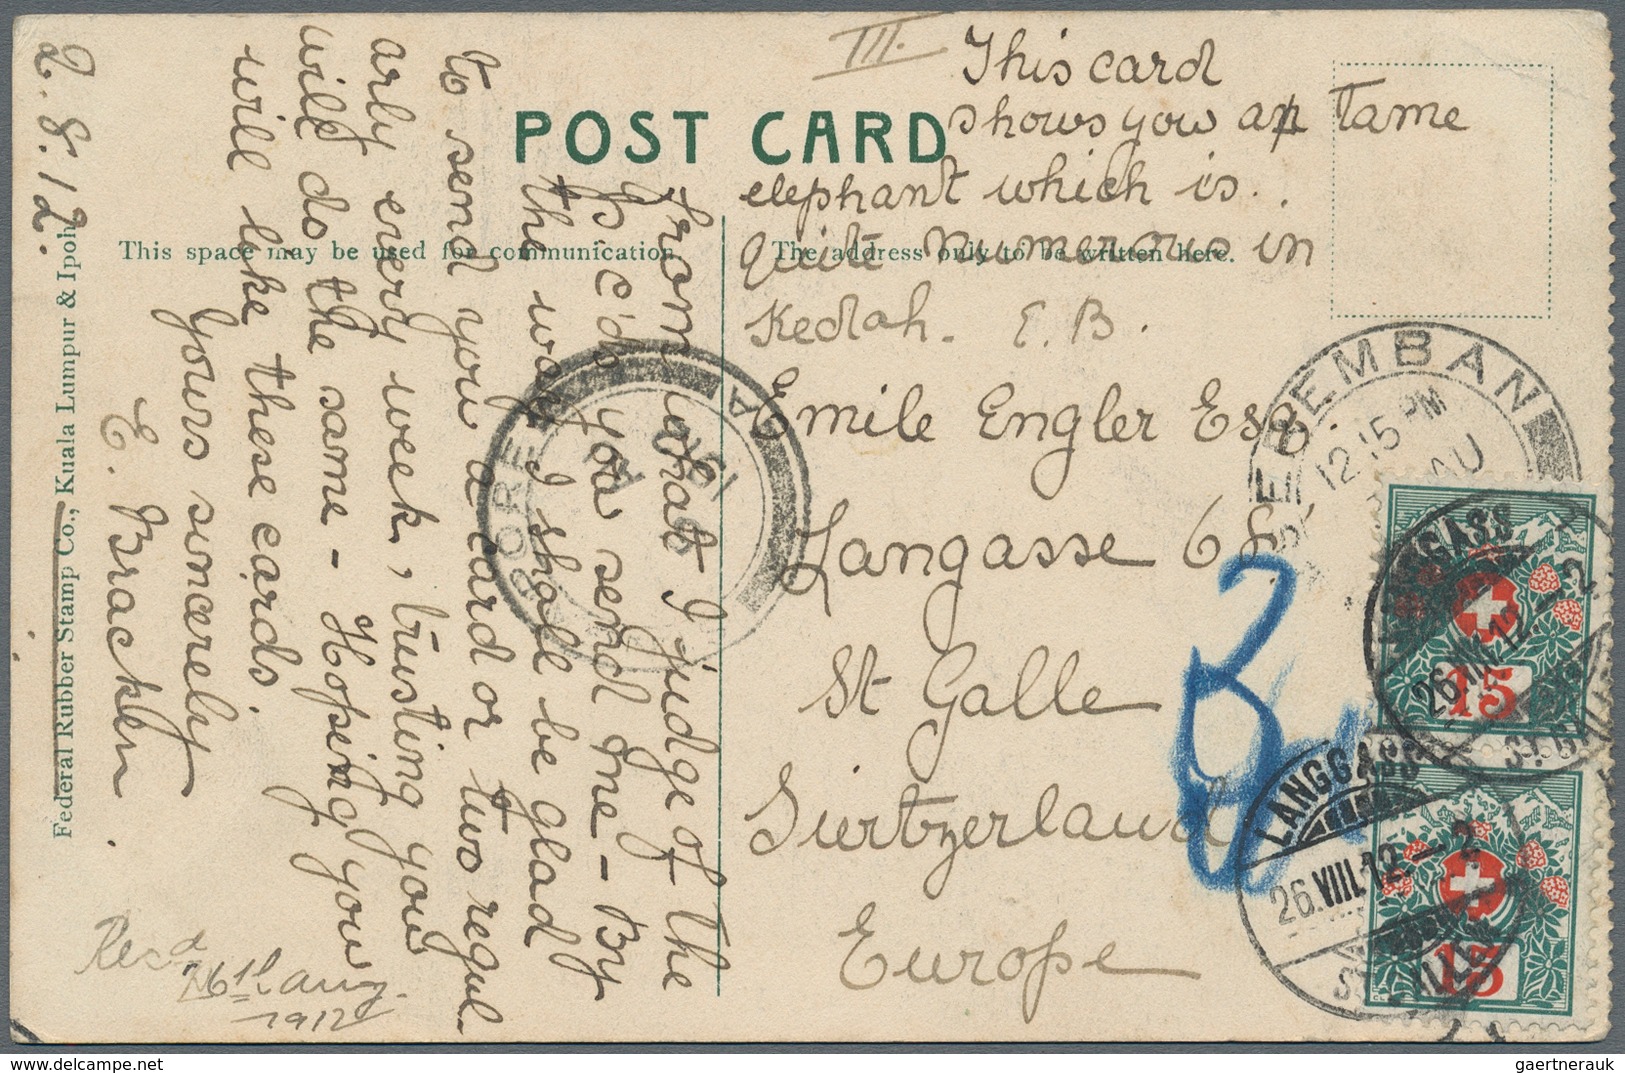 III.
This card
shows you a tame
elephant which is.
quite numerous in
Kedah. E. B.
POST CARD
This space may be used for communication.
The address only to be written here.
Emile Engler Esq.
Langasse 68
St Galle
Suertzerland
Europe
From what I judge of the
P. c'ds you send me - By
the way I shall be glad
to send you a card or two regul-
arly every week, trusting you
will do the same - Hoping you
will like these cards.
Yours sincerely
E. Bracken.
2. 8. 12.
Federal Rubber Stamp Co., Kuala Lumpur & Ipoh.
Recd
26th aug.
1912
SEREMBAN
12.15 PM
AU
LANGGASS
26.VIII.12.–2
ST. GALLEN
15
LANGGASS
26.VIII.12.–2
15
gaertnerauk